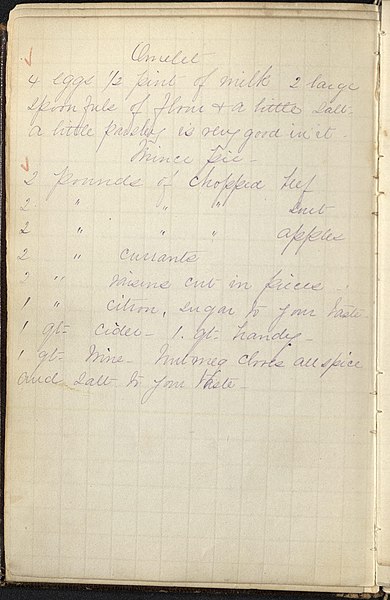 Omelet
4 eggs 1/2 pint of milk 2 large
spoonfuls of flour & a little salt.
a little parsley is very good in it.
Mince Pie -
2 pounds of chopped beef
2 " " " suit
2 " " " apples
2 " currants
2 " raisins cut in pieces -
1 " citron, sugar to your taste
1 qt- cider - 1. qt- brandy -
1 qt- wine - Nutmeg cloves all spice
and salt to your taste -